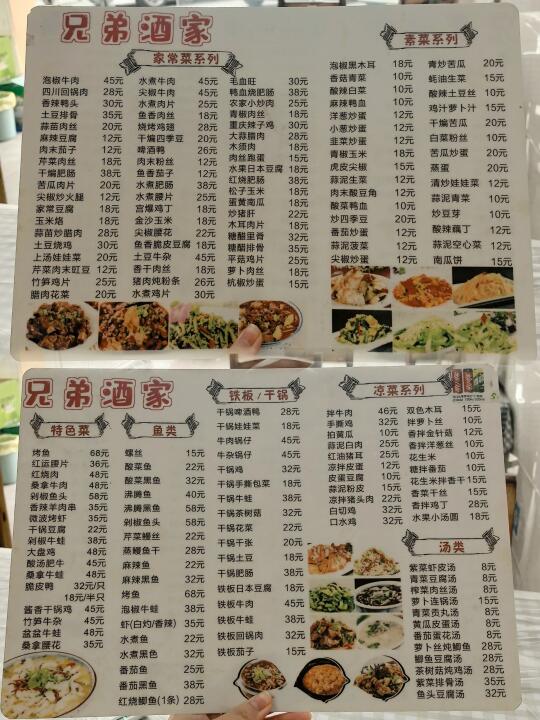 兄弟酒家
家常菜系列
泡椒牛肉 45元
四川回锅肉 28元
香辣鸭头 30元
土豆排骨 35元
蒜苗肉丝 20元
麻辣豆腐 12元
肉末茄子 12元
芹菜肉丝 18元
干煸肥肠 38元
苦瓜肉片 20元
尖椒炒火腿 12元
家常豆腐 18元
玉米烙 18元
蒜苗炒腊肉 28元
土豆烧鸡 30元
上汤娃娃菜 20元
芹菜肉末豇豆 12元
竹笋鸡片 25元
腊肉花菜 20元
水煮牛肉 45元
尖椒牛肉 45元
水煮肉片 25元
鱼香肉丝 18元
烧烤鸡翅 28元
干煸四季豆 20元
啤酒鸭 26元
肉末粉丝 12元
鱼香茄子 12元
水煮肥肠 38元
水煮腰片 25元
宫爆鸡丁 18元
金沙玉米 18元
尖椒腰花 22元
鱼香脆皮豆腐 18元
土豆牛杂 45元
香干肉丝 18元
猪肉炖粉条 26元
水煮鸡片 30元
毛血旺 30元
鸭血烧肥肠 38元
农家小炒肉 25元
青椒肉丝 18元
重庆辣子鸡 30元
大蒜腊肉 28元
木须肉 18元
肉丝跑蛋 15元
水果日本豆腐 18元
红烧肥肠 38元
松子玉米 18元
蛋黄南瓜 18元
炒猪肝 22元
木耳肉片 18元
糖醋里脊 32元
糖醋排骨 35元
平菇鸡片 25元
萝卜肉丝 18元
杭椒炒蛋 15元
素菜系列
泡椒黑木耳 18元
香菇青菜 10元
酸辣白菜 10元
麻辣鸭血 10元
洋葱炒蛋 12元
小葱炒蛋 12元
韭菜炒蛋 12元
青椒玉米 18元
虎皮尖椒 15元
蒜泥生菜 12元
肉末酸豆角 12元
酸菜鸭血 12元
炒四季豆 20元
番茄炒蛋 12元
蒜泥菠菜 12元
尖椒炒蛋 12元
青炒苦瓜 20元
蚝油生菜 15元
酸辣土豆丝 10元
鸡汁萝卜汁 15元
干煸苦瓜 20元
白菜粉丝 10元
苦瓜炒蛋 20元
蒸蛋 20元
清炒娃娃菜 12元
蒜泥青菜 10元
炒豆芽 10元
酸辣藕丁 12元
蒜泥空心菜 12元
南瓜饼 15元
兄弟酒家
特色菜
烤鱼 68元
红运腰片 36元
红烧肉 48元
桑拿牛肉 48元
剁椒鱼头 58元
香辣羊肉串 35元
微波烤虾 35元
干锅豆腐 22元
剁椒牛蛙 38元
大盘鸡 48元
酸汤肥牛 45元
桑拿牛蛙 48元
脆皮鸭 32元/只
18元/半只
酱香干锅鸡 45元
竹笋牛杂 45元
盆盆牛蛙 48元
桑拿腰花 35元
鱼类
螺丝 15元
酸菜鱼 22元
酸菜黑鱼 32元
沸腾鱼 40元
沸腾黑鱼 58元
剁椒鱼头 58元
芹菜鳗丝 22元
蒸鳗鱼干 28元
麻辣鱼 22元
麻辣黑鱼 32元
烤鱼 68元
泡椒牛蛙 38元
虾(白灼/香辣) 35元
水煮鱼 22元
水煮黑色 32元
番茄鱼 25元
番茄黑鱼 38元
红烧鲫鱼(1条) 28元
铁板/干锅
干锅啤酒鸭 28元
干锅娃娃菜 18元
牛肉锅仔 45元
牛杂锅仔 45元
干锅鸡 32元
干锅手撕包菜 18元
干锅牛蛙 38元
干锅茶树菇 32元
干锅花菜 22元
干锅千张 20元
干锅土豆 18元
干锅肥肠 38元
铁板日本豆腐 18元
铁板牛肉 45元
铁板牛蛙 38元
铁板回锅肉 32元
铁板茄子 15元
凉菜系列
拌牛肉 46元
手撕鸡 32元
拍黄瓜 10元
蒜泥白肉 25元
红油猪耳 25元
凉拌皮蛋 12元
皮蛋豆腐 10元
蒜泥粉皮 15元
凉拌猪头肉 22元
白切鸡 32元
口水鸡 32元
双色木耳 15元
拌萝卜丝 10元
香拌金针菇 12元
香拌洋葱丝 10元
花生米 10元
糖拌番茄 10元
花生米拌香干 15元
香菜干丝 15元
香拌鸡丁 28元
水果小汤圆 18元
汤类
紫菜虾皮汤 8元
青菜豆腐汤 8元
榨菜肉丝汤 8元
萝卜连锅汤 15元
青菜贡丸汤 8元
黄瓜皮蛋汤 8元
番茄蛋花汤 8元
萝卜丝炖鲫鱼 28元
鲫鱼豆腐汤 28元
茶树菇炖鸡汤 28元
紫菜排骨汤 35元
鱼头豆腐汤 32元